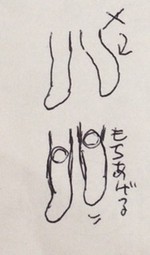 もちあげる